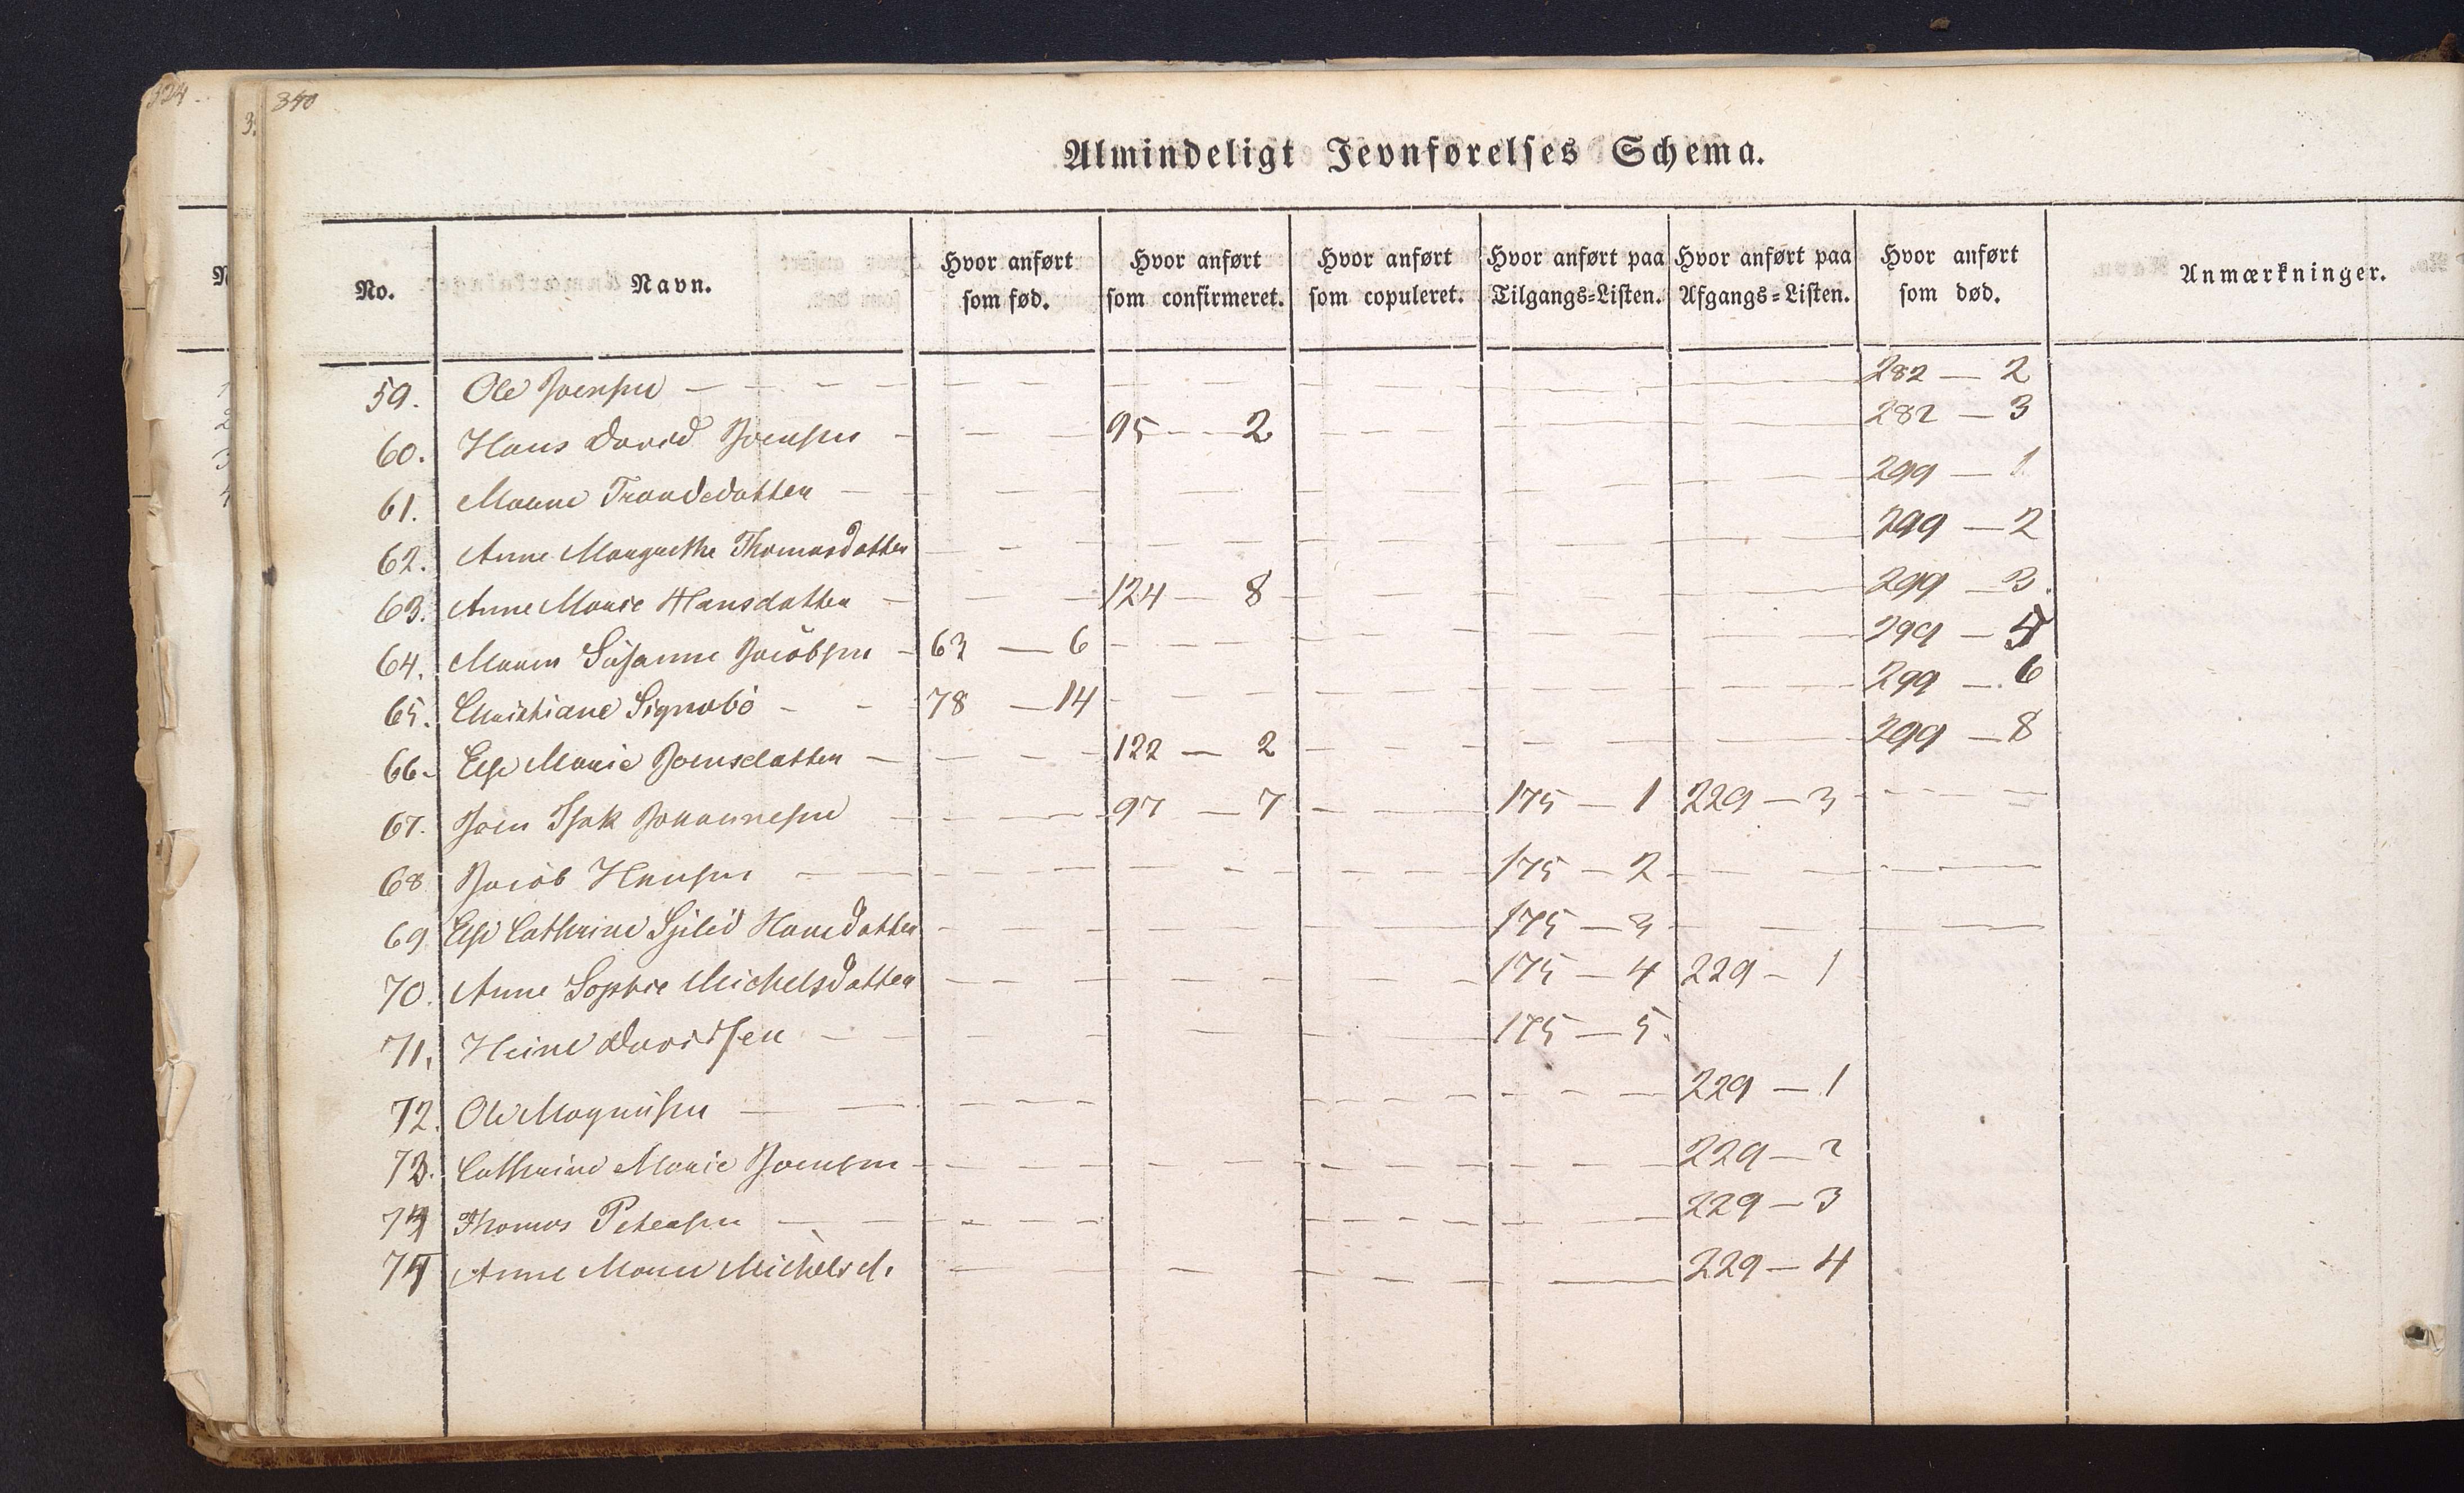 340
Almindeligt Jevnførelses Schema.
No. Navn. Hvor anført som fød. Hvor anført som confirmeret. Hvor anført som copuleret. Hvor anført paa Tilgangs-Listen. Hvor anført paa Afgangs-Listen. Hvor anført som død. Anmærkninger.
59. Ole Joensen 282 — 2
60. Hans David Joensen 95 — 2 282 — 3
61. Maune Trondsdatter 299 — 1
62. Anne Margrethe Thomasdatter 299 — 2
63. Anne Marie Hansdatter 124 — 8 299 — 3.
64. Maren Susanne Jacobsen 63 — 6 299 — 5
65. Christiane Signabö 78 — 14 299 — 6
66. Else Marie Joensdatter 122 — 2 299 — 8
67. Joen Isak Johannesen 97 — 7 175 — 1 229 — 3
68 Jacob Hansen 175 — 2
69 Else Cathrine Hansdatter 175 — 3
70. Anne Sophie Michelsdatter 175 — 4 229 — 1
71. Heine Davidsen 175 — 5.
72. Ole Magnusen 229 — 1
73. Cathrine Marie Joensen 229 — 2
74 Thomas Petersen 229 — 3
75 Anne Marie Michelsd. 229 — 4